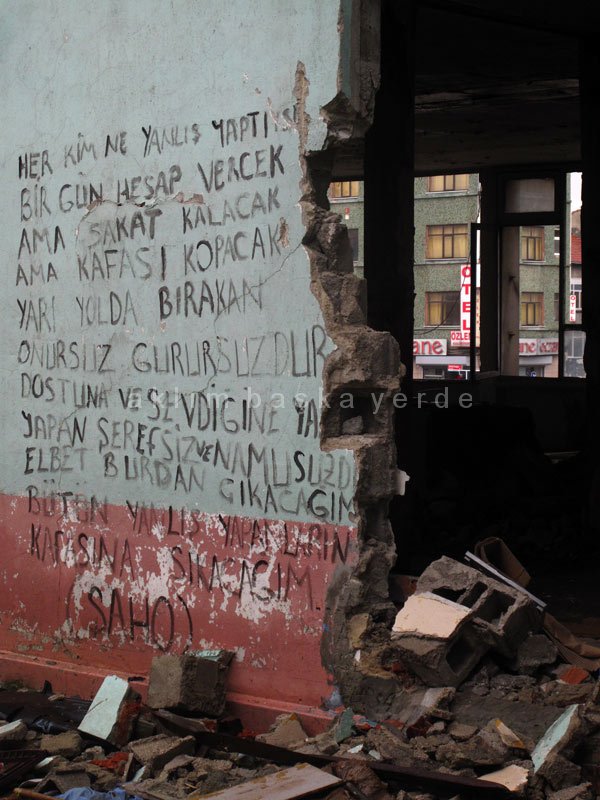 HER KİM NE YANLIŞ YAPTIYSE
BİR GÜN HESAP VERCEK
AMA SAKAT KALACAK
AMA KAFASI KOPACAK
YARI YOLDA BIRAKAN
ONURSUZ GURURSUZDUR
DOSTUNA VE SEVDİĞİNE YA
YAPAN ŞEREFSİZ VE NAMUSUZDU
ELBET BURDAN ÇIKACAĞIM
BÜTÜN YANLIŞ YAPANLARIN
KAFASINA SIKACAĞIM
(SAHO)
aklım başka yerde
OTEL
ÖZLE
ane
ane